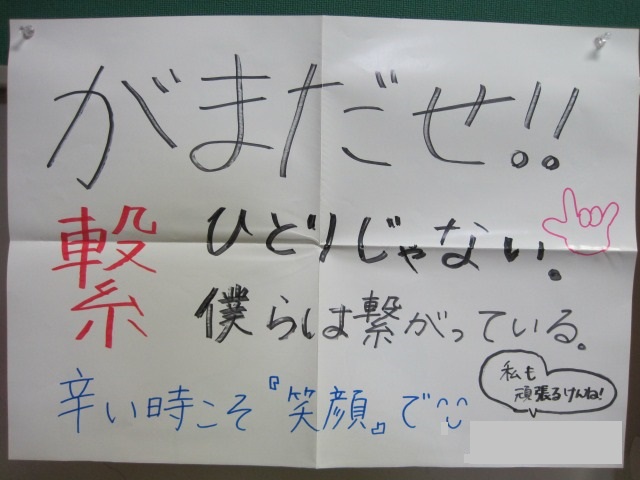 がまだせ!!
繋
ひとりじゃない。
僕らは繋がっている。
辛い時こそ『笑顔』で
私も
頑張るけんね!